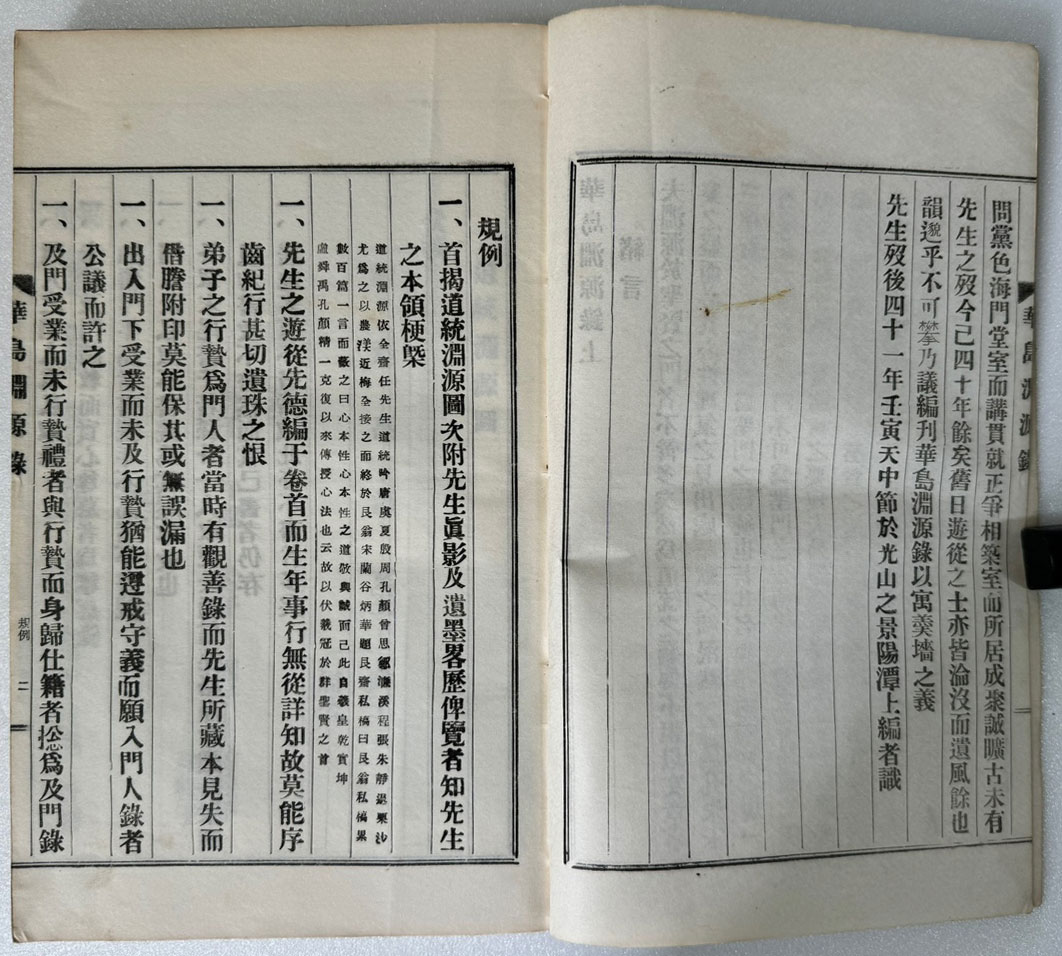 問黨色海門堂室而講貫就正爭相築室而所居成聚誠曠古未有
先生之歿今已四十年餘矣舊日遊從之士亦皆淪沒而遺風餘也
韻邈乎不可攀乃議編刊華島淵源錄以寓羹墻之義
先生歿後四十一年壬寅天中節於光山之景陽潭上編者識
華島淵源錄
規例
一、首揭道統淵源圖次附先生眞影及遺墨畧歷俾覽者知先生
之本領梗槩
道統淵源依全齋任先生道統吟唐虞夏殷周孔顏曾思鄒濂溪程張朱靜退栗沙
尤爲之以農渼近梅全接之而終於艮翁宋蘭谷炳華題艮齋私稿曰艮翁私稿累
數百篇一言而蔽之曰心本性心本性之道敬與誠而已此自羲皇乾實坤
虛舜禹孔顏精一克復以來傳授心法也云故以伏羲冠於群聖賢之首
一、先生之遊從先德編于卷首而生年事行無從詳知故莫能序
齒紀行甚切遺珠之恨
一、弟子之行贄爲門人者當時有觀善錄而先生所藏本見失而
借謄附印莫能保其或無誤漏也
一、出入門下受業而未及行贄猶能遵戒守義而願入門人錄者
公議而許之
一、及門受業而未行贄禮者與行贄而身歸仕籍者捴爲及門錄
華島淵源錄
規例
二